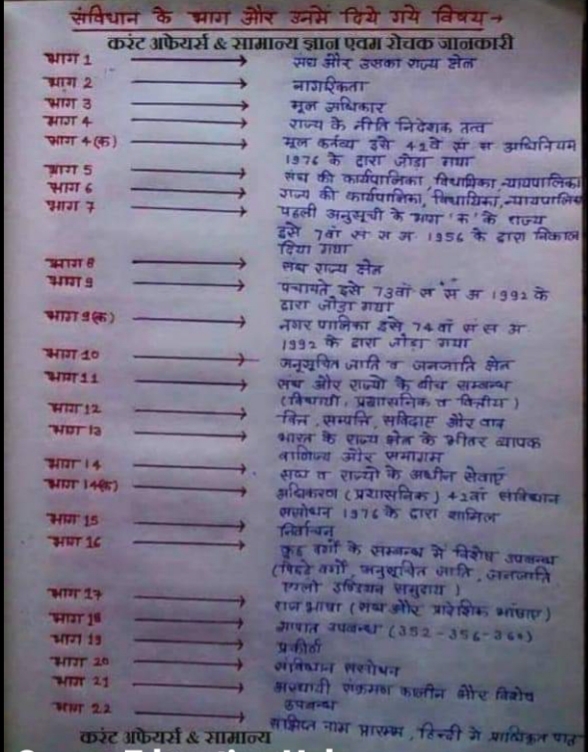 संविधान के भाग और उनमें दिये गये विषय →
करंट अफेयर्स & सामान्य ज्ञान एवम रोचक जानकारी
भाग 1 → संघ और उसका राज्य क्षेत्र
भाग 2 → नागरिकता
भाग 3 → मूल अधिकार
भाग 4 → राज्य के नीति निदेशक तत्व
भाग 4 (क) → मूल कर्तव्य इसे 42वे सं स अधिनियम
1976 के द्वारा जोड़ा गया
भाग 5 → संघ की कार्यपालिका, विधायिका, न्यायपालिका
भाग 6 → राज्य की कार्यपालिका, विधायिका, न्यायपालिका
भाग 7 → पहली अनुसूची के भाग 'क' के राज्य
इसे 7वां सं स अ. 1956 के द्वारा निकाल
दिया गया
भाग 8 → संघ राज्य क्षेत्र
भाग 9 → पंचायते इसे 73वां सं सं अ 1992 के
द्वारा जोड़ा गया
भाग 9(क) → नगर पालिका इसे 74 वां सं स अ
1992 के द्वारा जोड़ा गया
भाग 10 → अनुसूचित जाति व जनजाति क्षेत्र
भाग 11 → संघ और राज्यो के बीच सम्बन्ध
(विधायी, प्रशासनिक व वित्तीय)
भाग 12 → वित्त, सम्पत्ति, संविदाएं और वाद
भाग 13 → भारत के राज्य क्षेत्र के भीतर व्यापक
वाणिज्य और समागम
भाग 14 → संघ व राज्यो के अधीन सेवाएं
भाग 14(क) → अधिकरण (प्रशासनिक) 42वां संविधान
संशोधन 1976 के द्वारा शामिल
भाग 15 → निर्वाचन
भाग 16 → कुछ वर्गो के सम्बन्ध में विशेष उपबन्ध
(पिछडे वर्गो, अनुसूचित जाति, जनजाति
एंग्लो इण्डियन समुदाय)
भाग 17 → राज भाषा (संघ और प्रादेशिक भाषाएं)
भाग 18 → आपात उपबन्ध (352-356-360)
भाग 19 → प्रकीर्ण
भाग 20 → संविधान संशोधन
भाग 21 → अस्थायी संक्रमण कालीन और विशेष
उपबन्ध
भाग 22 → संक्षिप्त नाम प्रारम्भ, हिन्दी में प्राधिकृत पाठ
करंट अफेयर्स & सामान्य